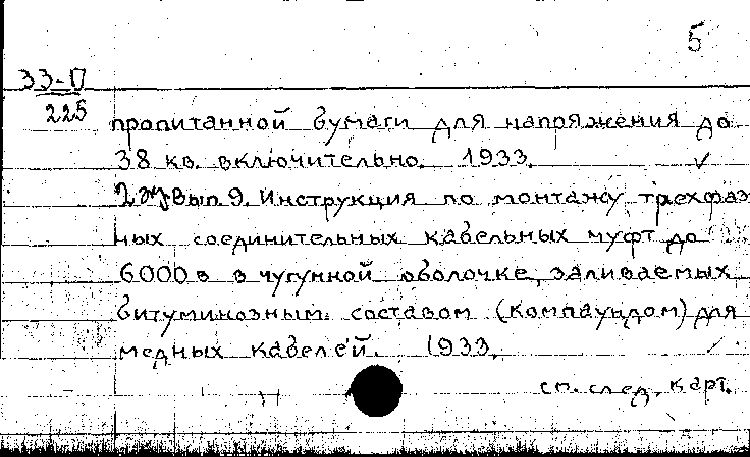 5
33-П
225
пропитанной бумаги для напряжения до
38 кв. включительно. 1933. ✓
Вып 9. Инструкция по монтажу трехфаз
ных соединительных кабельных муфт до
6000 в в чугунной оболочке, заливаемых
битуминозным составом (компаундом) для
медных кабелей. 1933. ✓
см. след. карт.